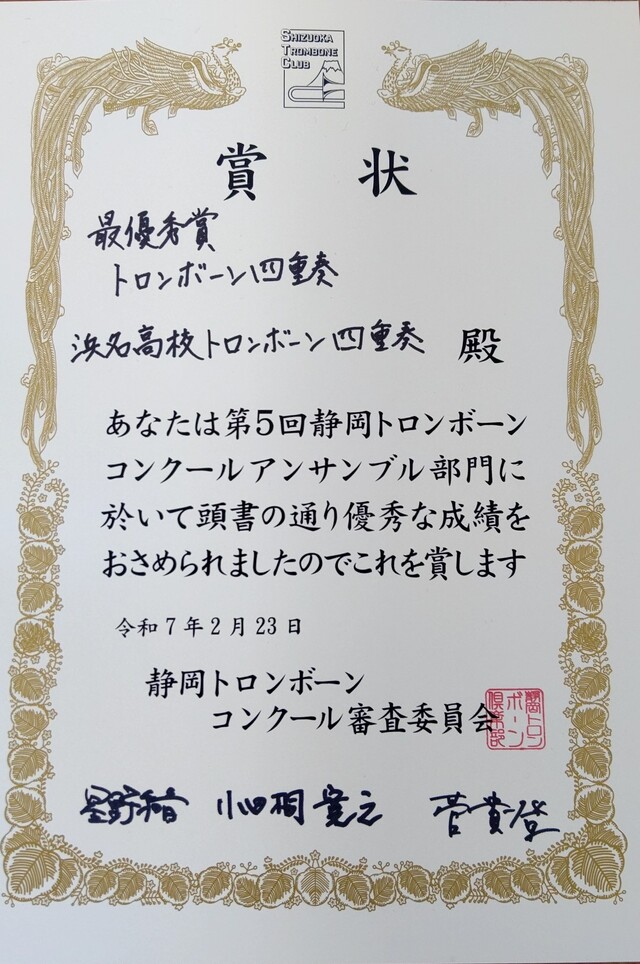 SHIZUOKA
TROMBONE
CLUB
賞 状
最優秀賞
トロンボーン四重奏
浜名高校トロンボーン四重奏 殿
あなたは第5回静岡トロンボーン
コンクールアンサンブル部門に
於いて頭書の通り優秀な成績を
おさめられましたのでこれを賞します
令和7年2月23日
静岡トロンボーン
コンクール審査委員会
静岡トロン
ボーン
倶楽部